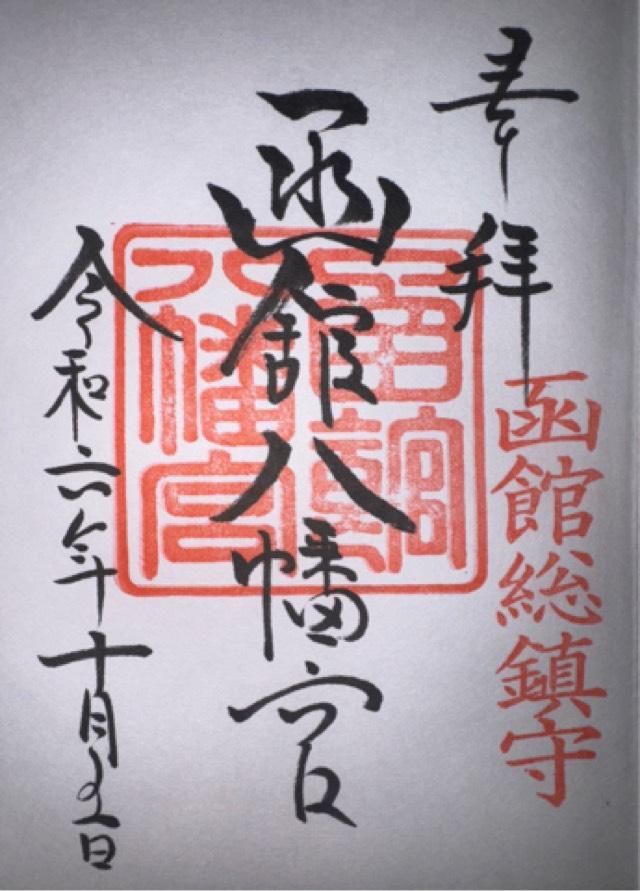 奉拝
函館総鎮守
函館八幡宮
函館八幡宮
令和六年十月五日